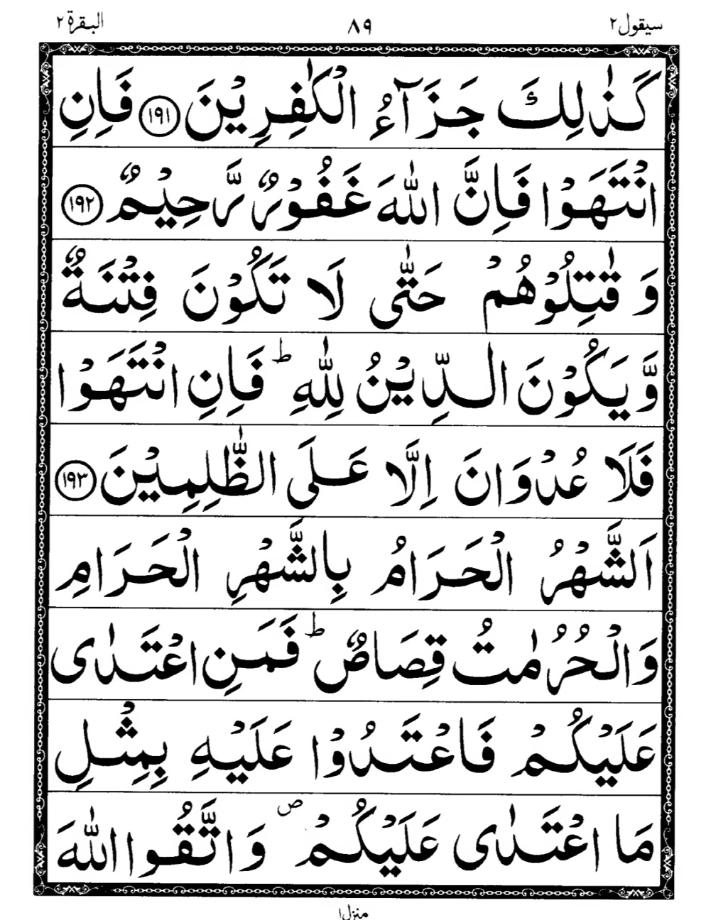 سيقول٢ ٨٩ البقرة٢
كَذٰلِكَ جَزَآءُ الْكٰفِرِيْنَ ﴿۱۹۱﴾ فَاِنِ
انْتَهَوْا فَاِنَّ اللّٰهَ غَفُوْرٌ رَّحِيْمٌ ﴿۱۹۲﴾
وَ قٰتِلُوْهُمْ حَتّٰى لَا تَكُوْنَ فِتْنَةٌ
وَّ يَكُوْنَ الدِّيْنُ لِلّٰهِ ؕ فَاِنِ انْتَهَوْا
فَلَا عُدْوَانَ اِلَّا عَلَى الظّٰلِمِيْنَ ﴿۱۹۳﴾
اَلشَّهْرُ الْحَرَامُ بِالشَّهْرِ الْحَرَامِ
وَالْحُرُمٰتُ قِصَاصٌ ؕ فَمَنِ اعْتَدٰى
عَلَيْكُمْ فَاعْتَدُوْا عَلَيْهِ بِمِثْلِ
مَا اعْتَدٰى عَلَيْكُمْ ۪ وَ اتَّقُوا اللّٰهَ
منزل۱